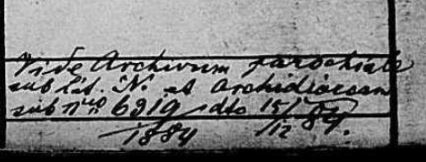 Vide Archivum parochiale
sub lit. N. et Archidioecesan
sub nro 6919 ddto 15/12 84.
1884